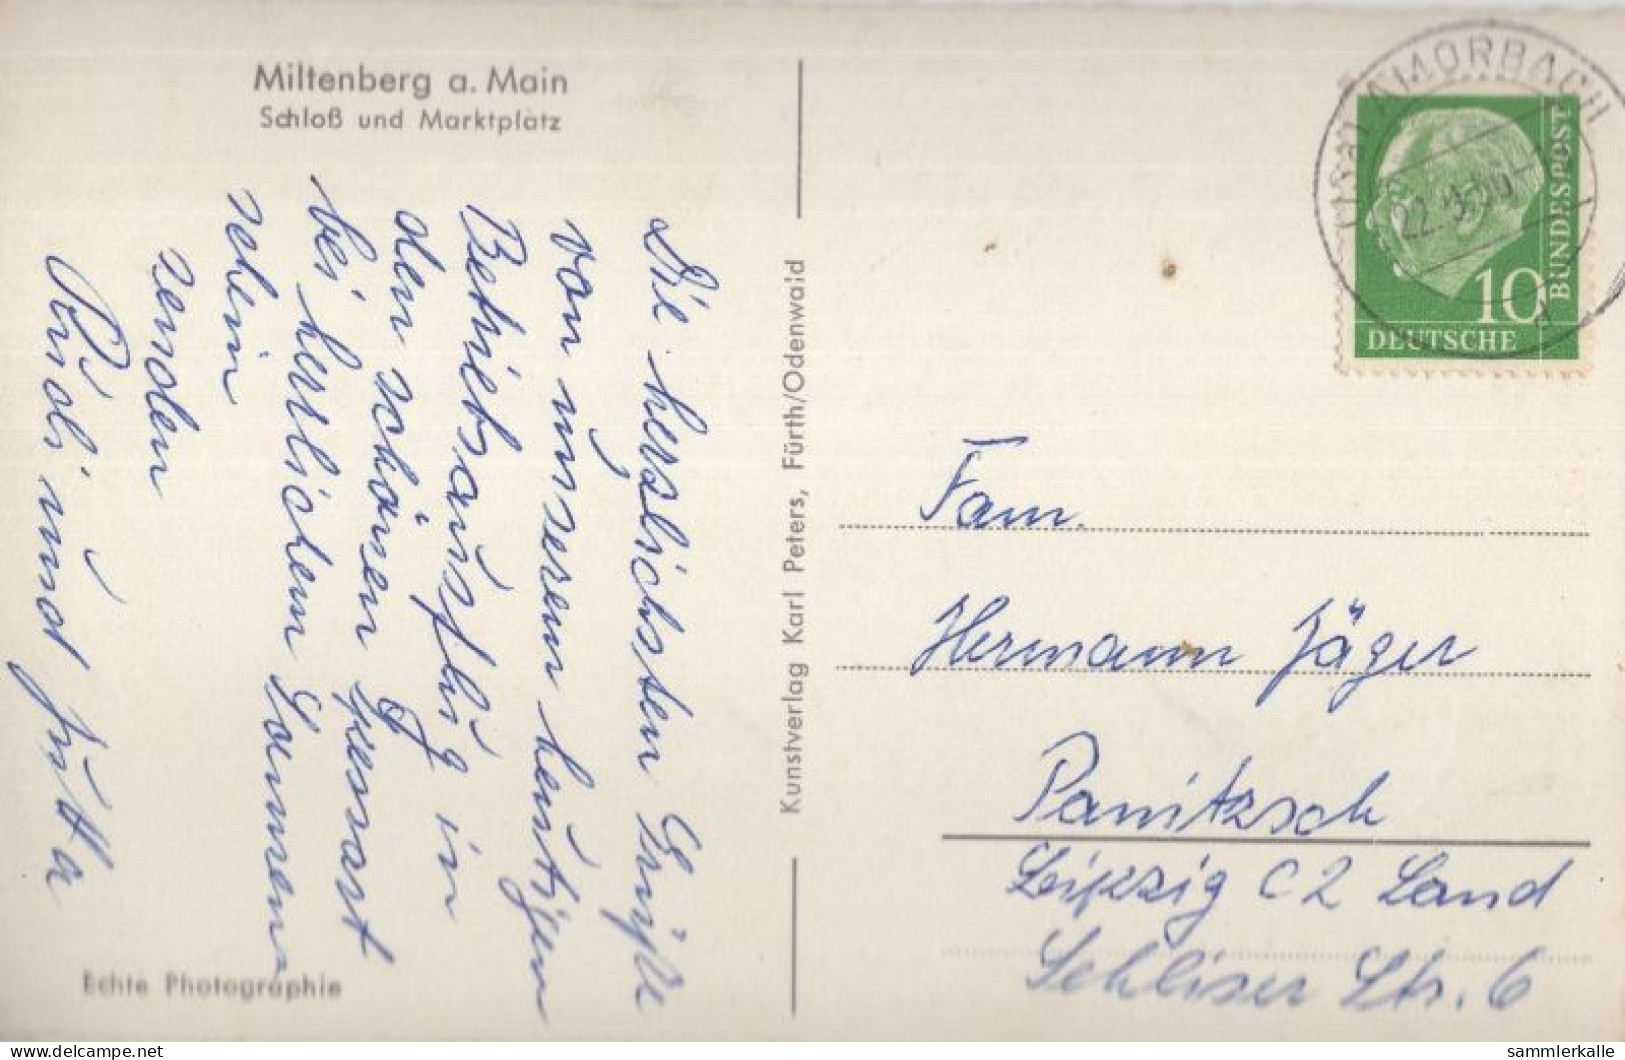 Miltenberg a. Main
Schloß und Marktplatz
Die herzlichsten Grüße
von unserem heutigen
Betriebsausflug in
den schönen
bei herrlichem
senden
Rudi und Jutta
Echte Photographie
Kunstverlag Karl Peters, Fürth/Odenwald
AMORBACH
22.9.
10
BUNDESPOST
DEUTSCHE
Fam.
Hermann Jäger
Panitzsch
Leipzig C2 Land
Str. 6
sammlerkalle